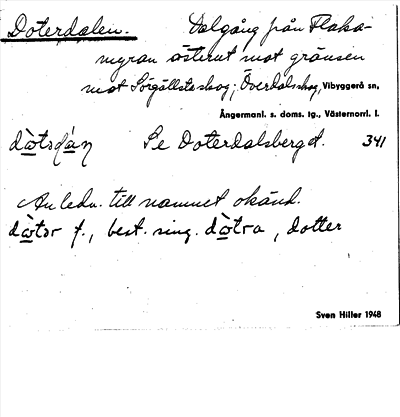 Doterdalen. Dalgång från Flaka-
myran österut mot gränsen
mot Sörgällstaskog; Överdalskog, Vibyggerå sn,
Ångermanl. s. doms. tg., Västernorrl. l.
Se Doterdalsberget. 341
Anledn. till namnet okänd.
f., best. sing. , dotter
Sven Hiller 1948